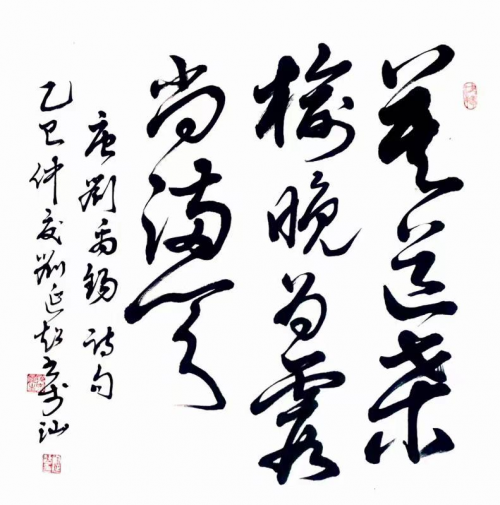 莫道桑
榆晚为霞
尚满天
唐劉禹锡诗句
乙巳仲夏劉延超书于汕